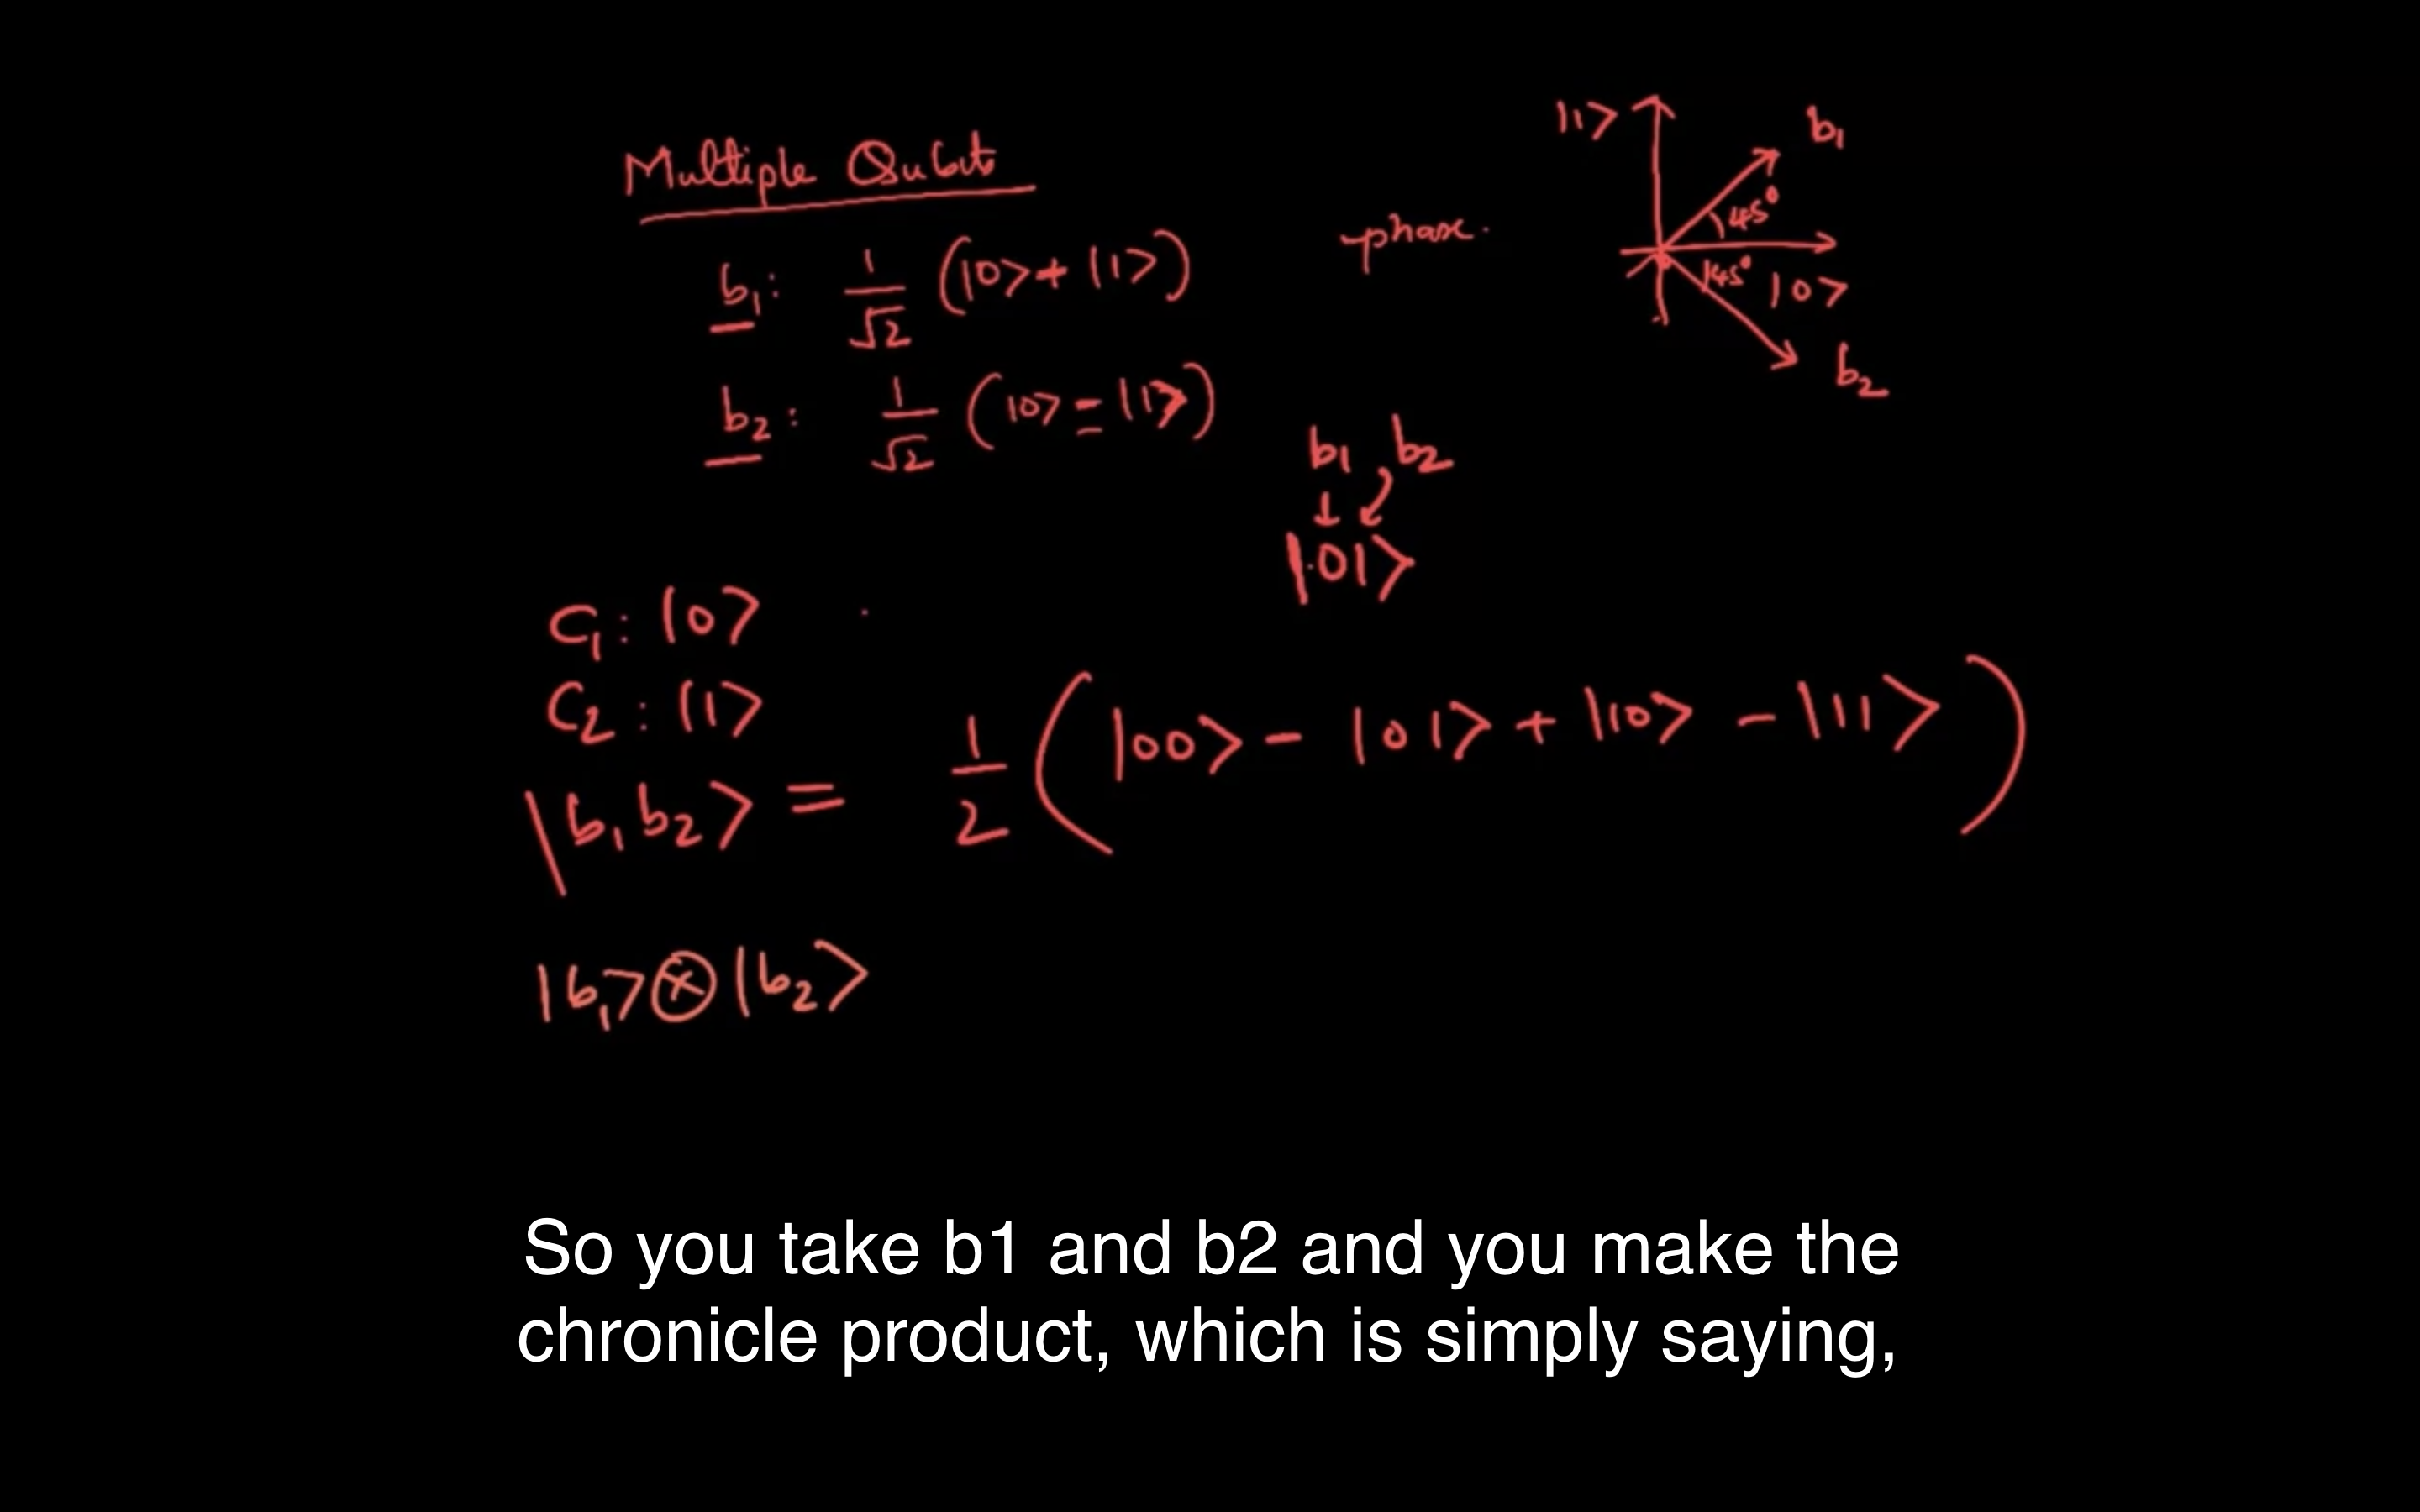 Multiple Qubits
b₁: 1/√2 (|0> + |1>)
phase.
|1>
b₁
45°
45°
|0>
b₂
b₂: 1/√2 (|0> - |1>)
b₁, b₂
|01>
C₁: |0>
C₂: |1>
|b₁b₂> = 1/2 (|00> - |01> + |10> - |11>)
|b₁> ⊗ |b₂>
So you take b1 and b2 and you make the
chronicle product, which is simply saying,